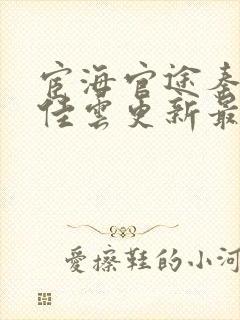 宦海官途秦
佳雲更新最
愛擦鞋的小河